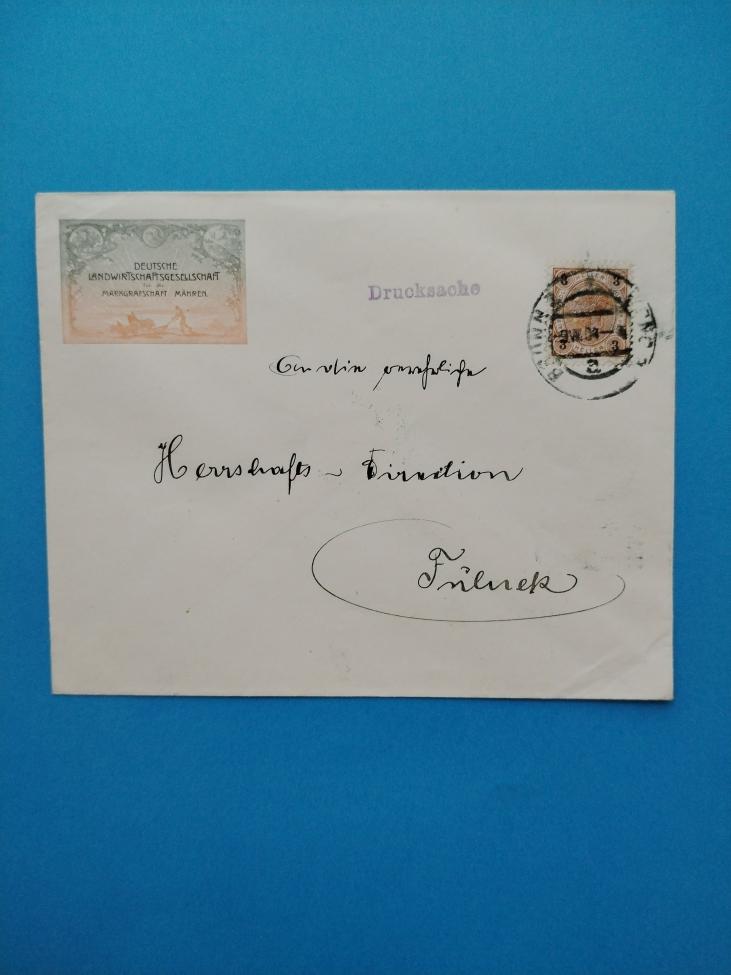 DEUTSCHE
LANDWIRTSCHAFTSGESELLSCHAFT
für die
MARKGRAFSCHAFT MÄHREN.
Drucksache
3 3
3 3
BRÜNN
An die verehrliche
Herrschafts - Direction
Fulnek